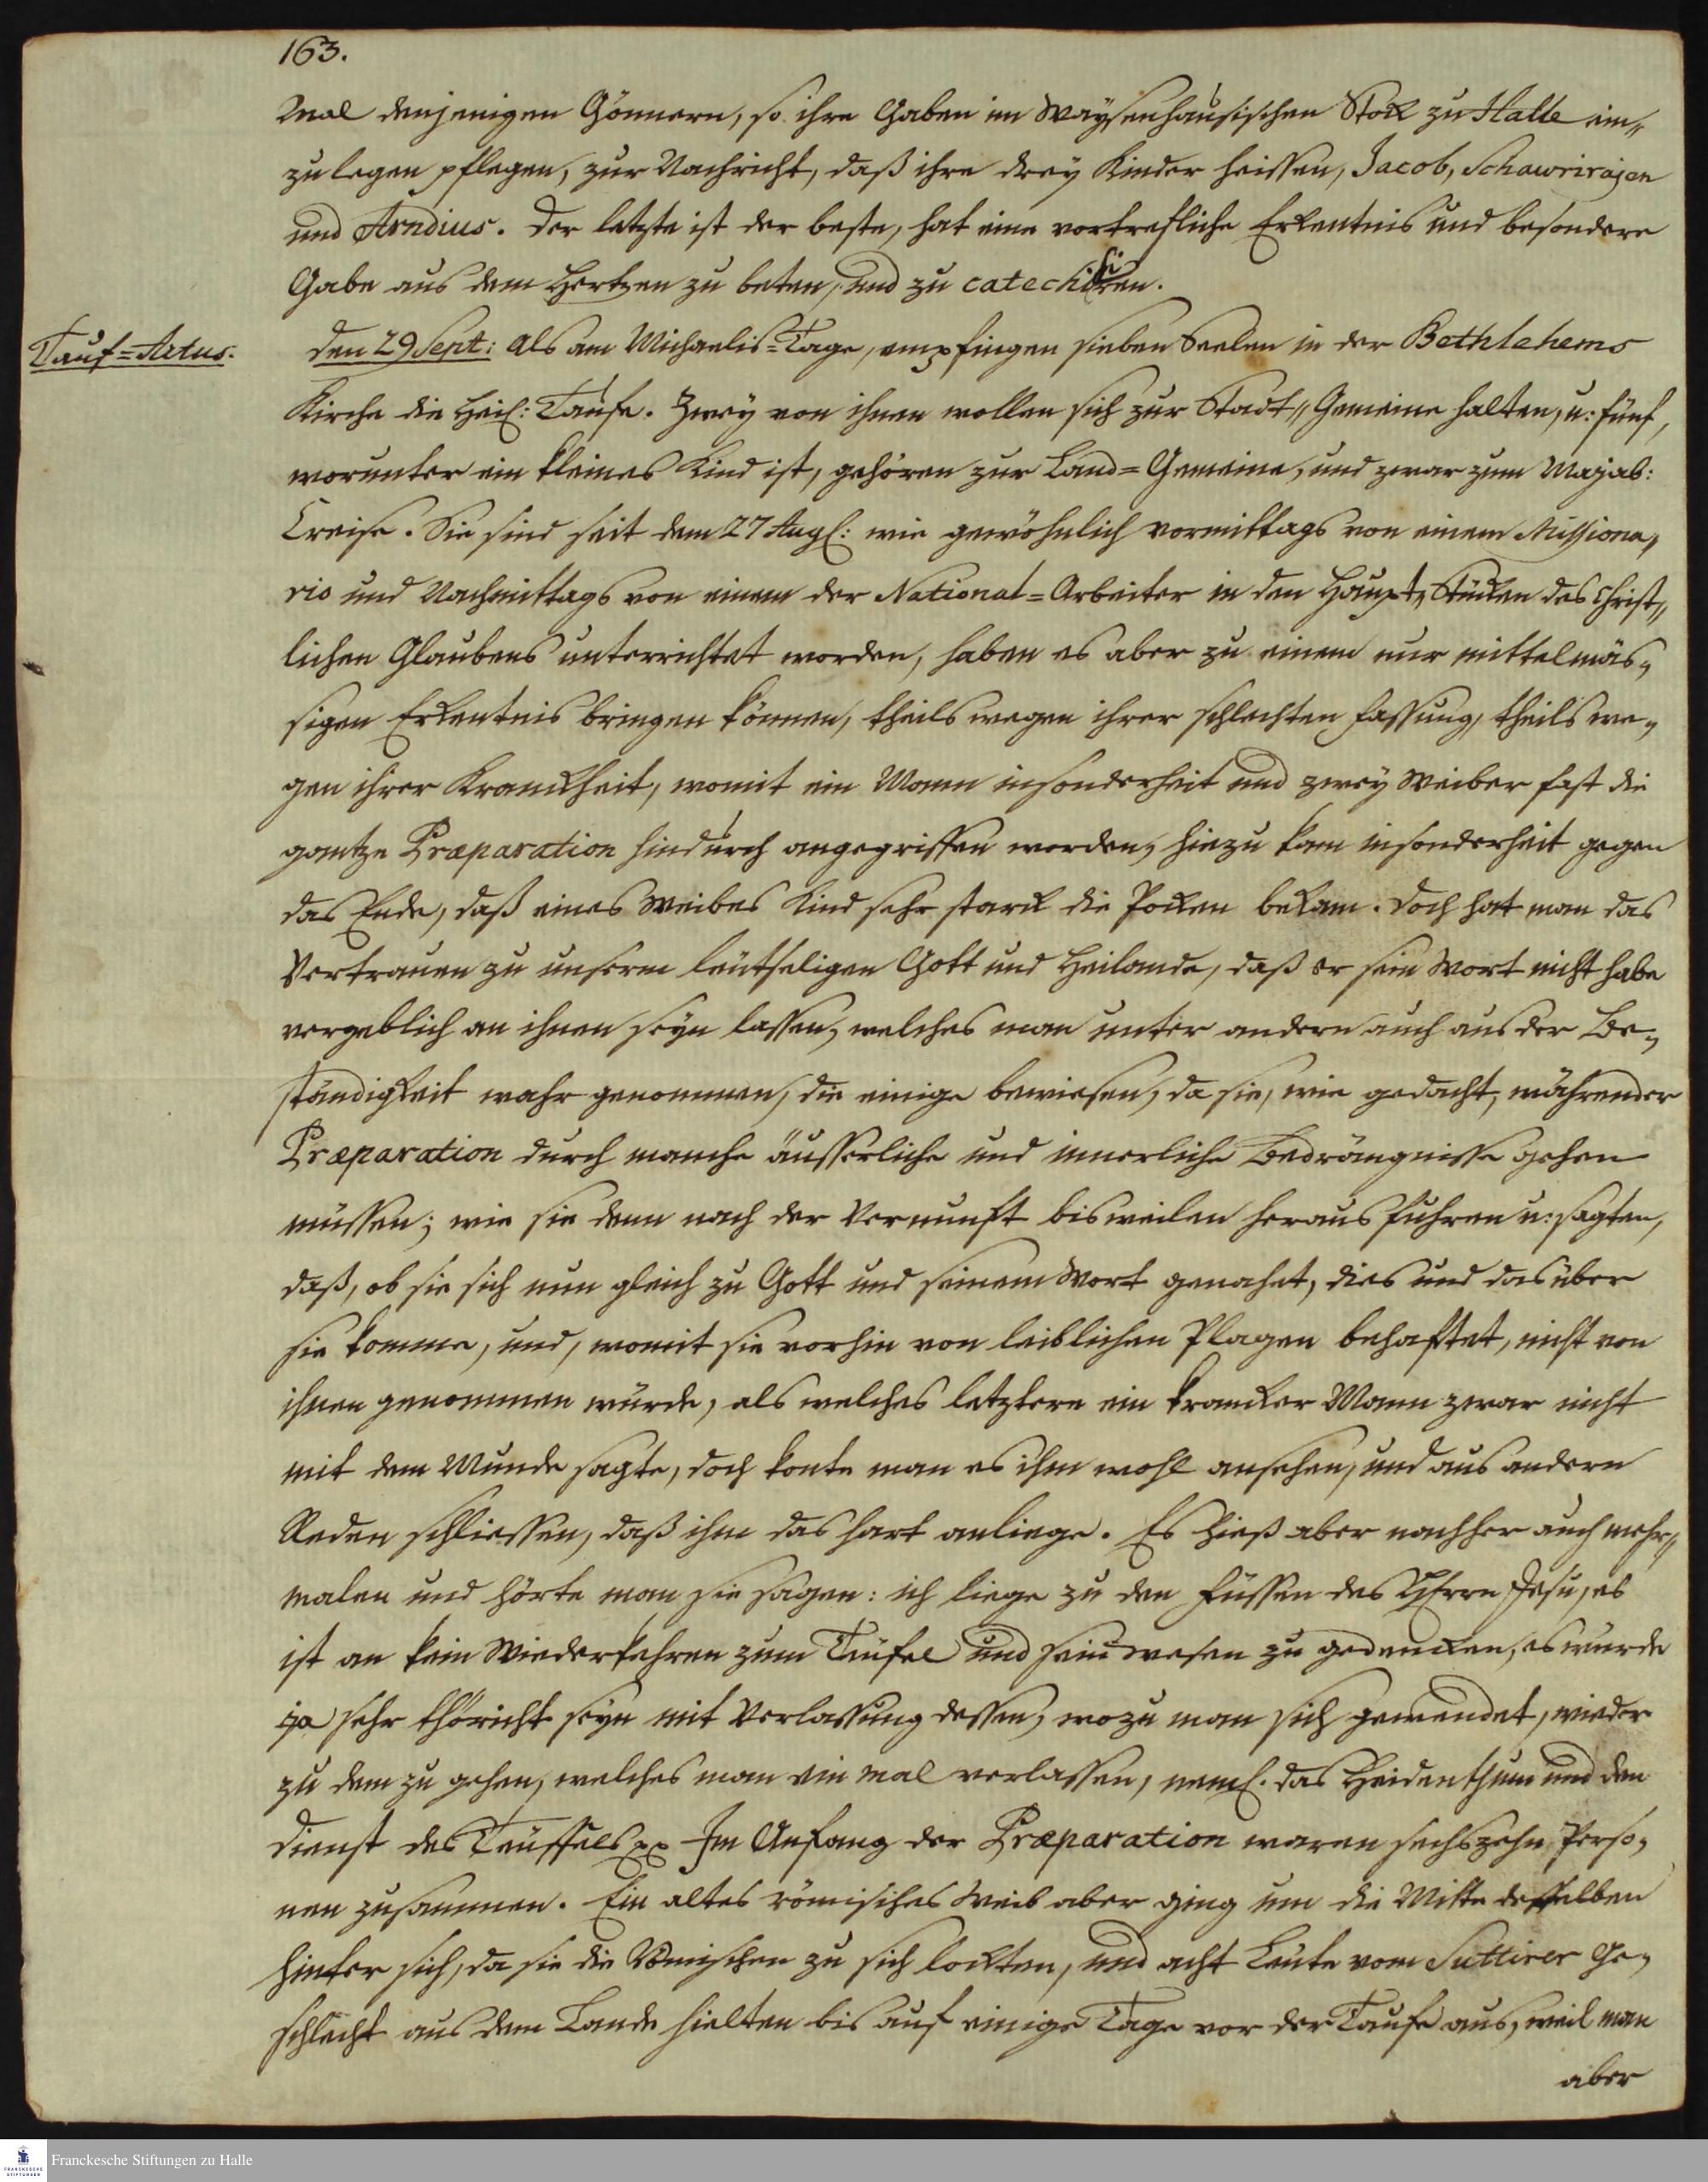 163.
Mal denjenigen Gönnern, so ihre Gaben im Waysenhäusischen Stok zu Halle ein„
zulegen pflegen, zur Nachricht, daß ihre drey Kinder heissen, Jacob, Schawrirajen
und Arndius. Der letzte ist der beste, hat eine vortrefliche Erkentnis und besondere
Gabe aus dem Hertzen zu beten, und zu catechisiren.
Tauf=Actus.
Den 29 Sept: Als am Michaelis=Tage, empfingen sieben Seelen in der Bethlehems
Kirche die Heil: Taufe. Zwey von ihnen wollen sich zur Stadt„Gemeine halten, u: fünf,
worunter ein kleines Kind ist, gehören zur Land=Gemeine, und zwar zum Majab:
Creise. Sie sind seit dem 27 Aug: wie gewöhnlich vormittags von einem Missiona„
rio und Nachmittags von einem der National=Arbeiter in den Haupt„Stücken des Christ„
lichen Glaubens unterrichtet worden, haben es aber zu einem nur mittelmäs„
sigen Erkentnis bringen können, theils wegen ihrer schlechten Fassung, theils we„
gen ihrer Kranckheit, womit ein Mann insonderheit und zwey Weiber fast die
gantze Præparation hindurch angegriffen worden, hiezu kam insonderheit gegen
das Ende, daß eines Weibes Kind sehr starck die Pocken bekam. Doch hat man das
Vertrauen zu unserm leutseligen Gott und Heilande, daß er sein Wort nicht habe
vergeblich an ihnen seyn lassen, welches man unter andern auch aus der Be„
ständigkeit wahr genommen, die einige bewiesen, da sie, wie gedacht, währender
Præparation durch manche äusserliche und innerliche Bedrängnisse gehen
müssen; wie sie denn nach der Vernunft bisweilen heraus fuhren u: sagten,
daß, ob sie sich nun gleich zu Gott und seinem Wort genahet, dies und das über
sie komme, und, womit sie vorhin von leiblichen Plagen behaftet, nicht von
ihnen genommen würde, als welches letztere ein krancker Mann zwar nicht
mit dem Munde sagte, doch konte man es ihm wohl ansehen, und aus andern
Reden schliessen, daß ihm das hart anliege. Es hieß aber nachher auch mehr„
malen und hörte man sie sagen: ich liege zu den Füssen des HErrn Jesu, es
ist an kein Wiederkehren zum Teufel und sein Wesen zu gedencken, es würde
ja sehr thöricht seyn mit Verlassung dessen, wozu man sich gewendet, wieder
zu dem zu gehen, welches man ein mal verlassen, neml. das Heidenthum und den
Dienst des Teuffels pp Im Anfang der Præparation waren sechszehn Perso„
nen zusammen. Ein altes römisches Weib aber ging um die Mitte desselben
hinter sich, da sie die Römischen zu sich lockten, und acht Leute vom Suttirer Ge„
schlecht aus dem Lande hielten bis auf einige Tage vor der Taufe aus, weil man
aber
Franckesche Stiftungen zu Halle